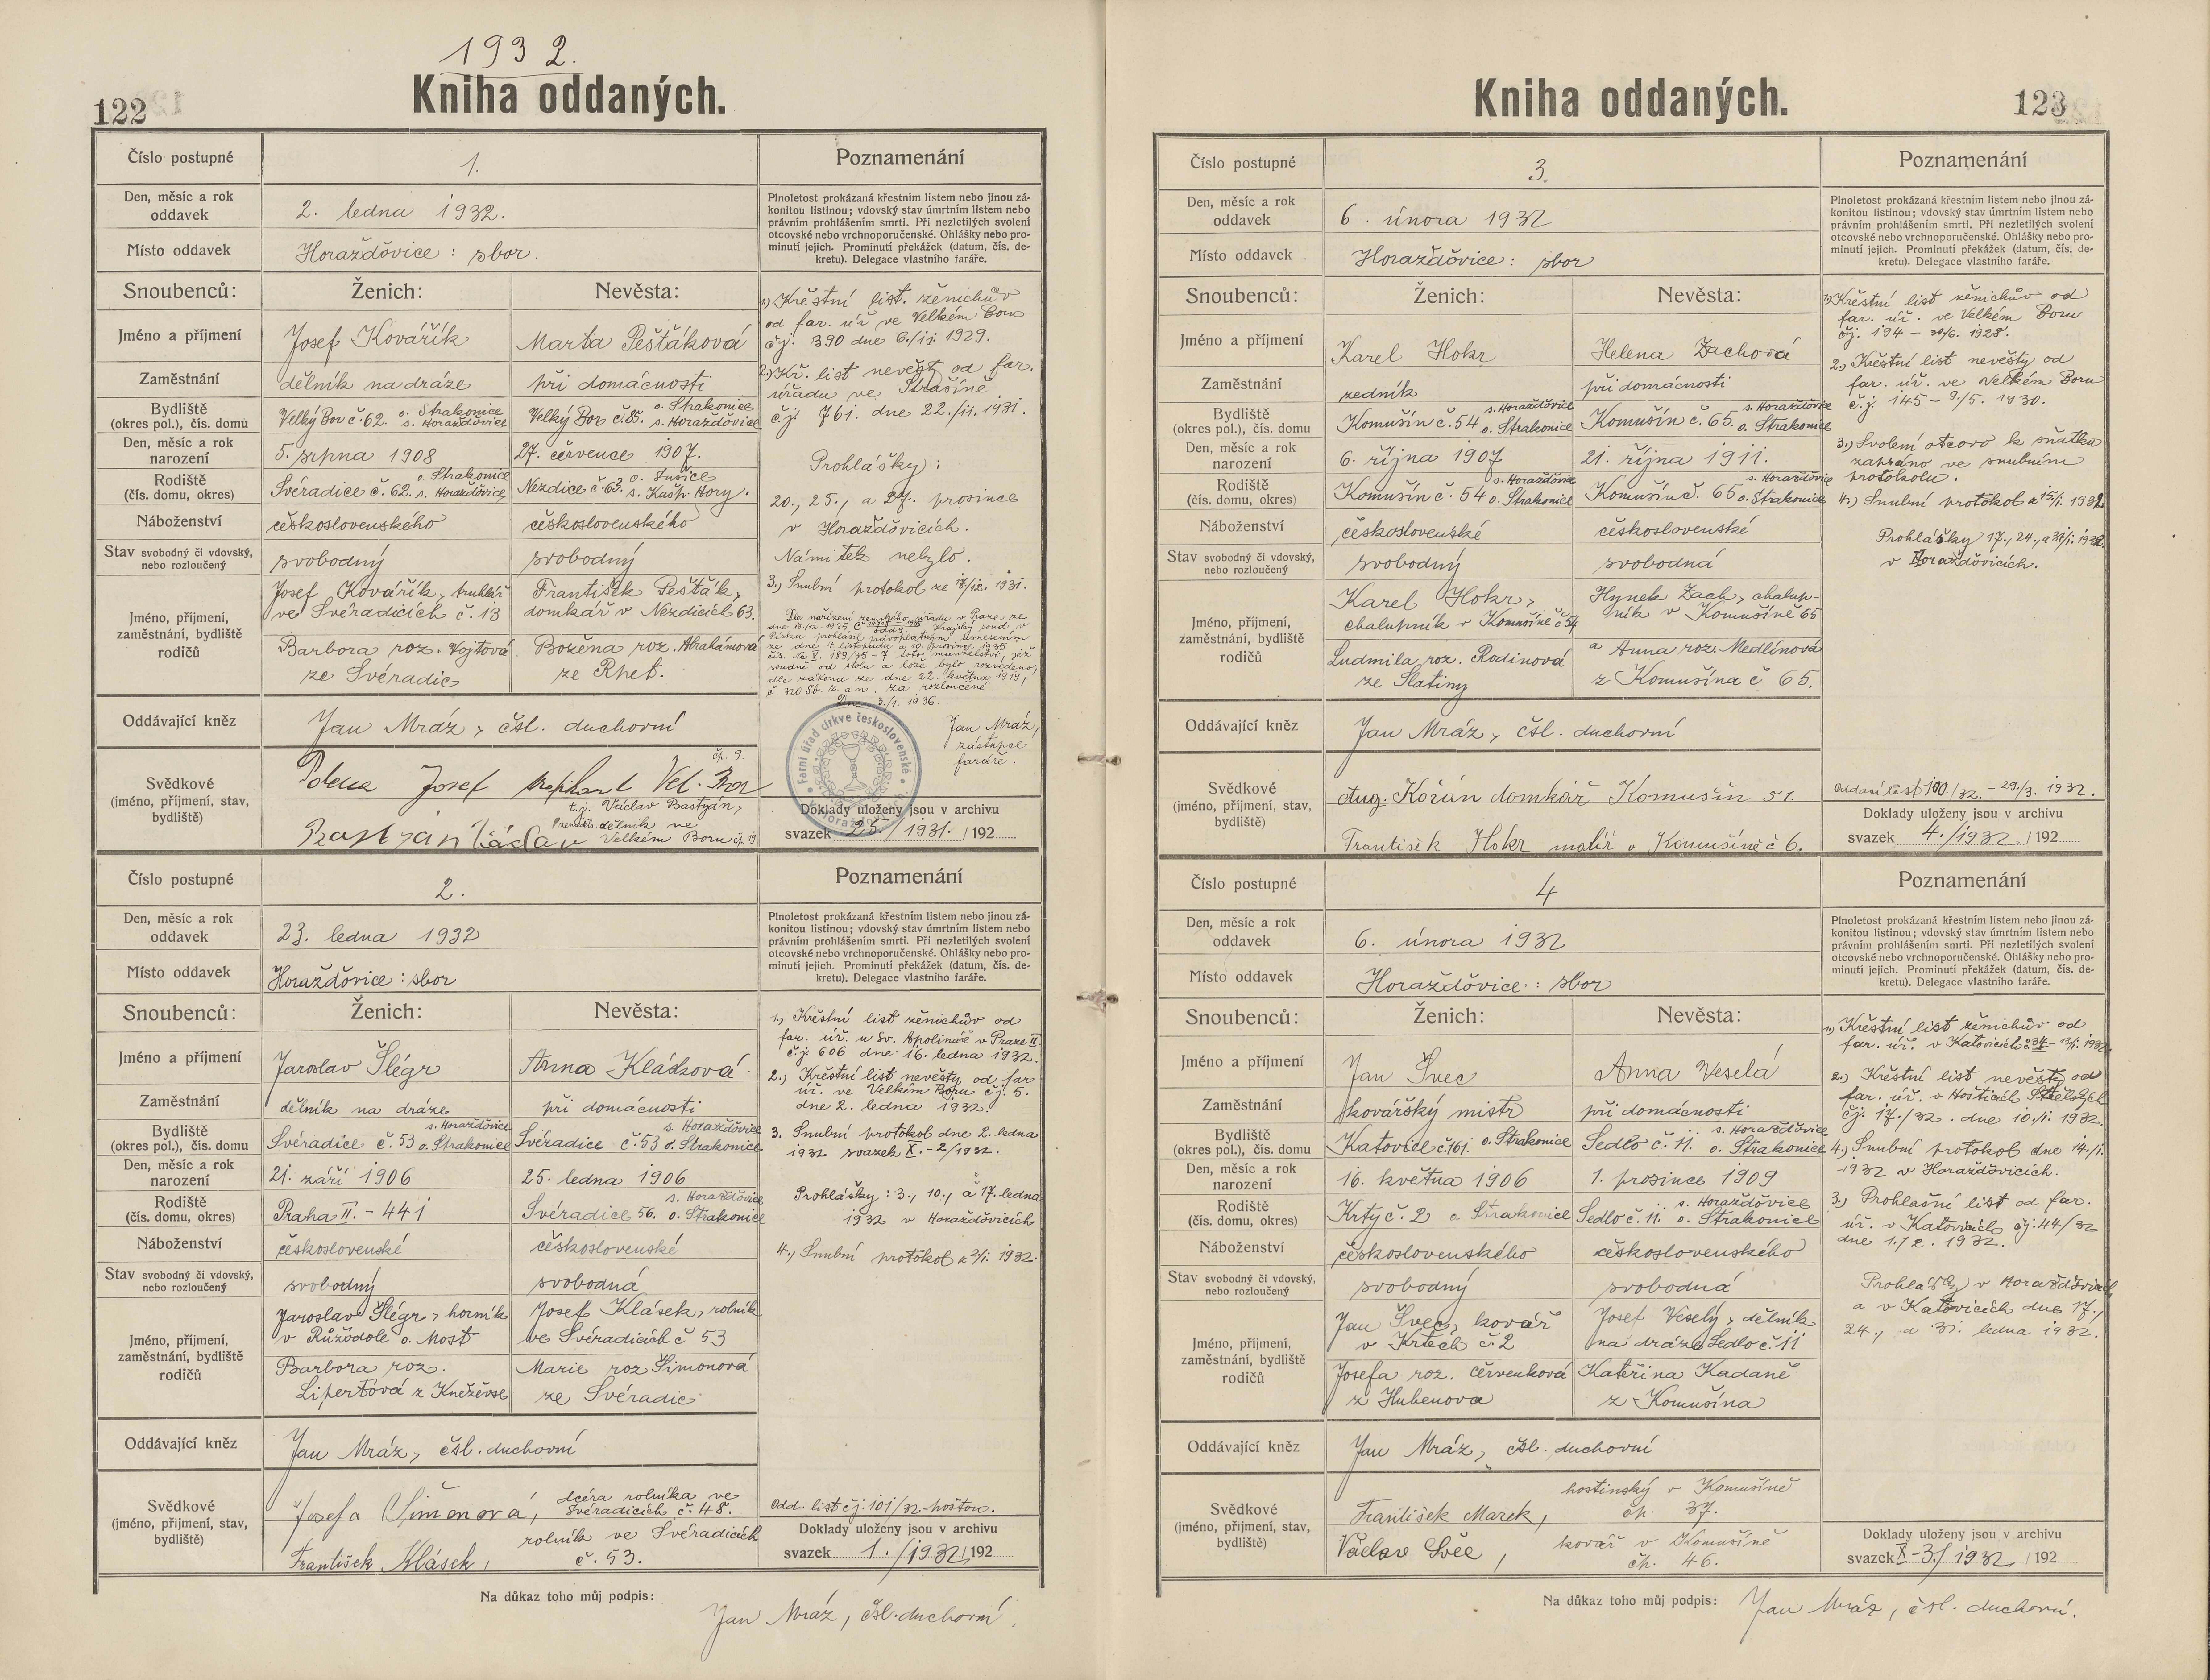 1932.
122
Kniha oddaných.
Číslo postupné
1.
Poznamenání
Den, měsíc a rok
oddavek
2. ledna 1932.
Plnoletost prokázaná křestním listem nebo jinou zá-
konitou listinou; vdovský stav úmrtním listem nebo
právním prohlášením smrti. Při nezletilých svolení
otcovské nebo vrchnoporučenské. Ohlášky nebo pro-
minutí jejich. Prominutí překážek (datum, čís. de-
kretu). Delegace vlastního faráře.
Místo oddavek
Horažďovice: sbor.
Snoubenců:
Ženich:
Nevěsta:
Jméno a příjmení
Josef Kovářík
Marta Pešťáková
Zaměstnání
dělník na dráze
při domácnosti
Bydliště
(okres pol.), čís. domu
Velký Bor č. 62. o. Strakonice
s. Horažďovice
Velký Bor č. 85. o. Strakonice
s. Horažďovice
Den, měsíc a rok
narození
5. srpna 1908
27. července 1907.
Rodiště
(čís. domu, okres)
Svéradice č. 62. o. Strakonice
s. Horažďovice
Nezdice č. 63. o. Sušice
s. Kašp. Hory.
Náboženství
československého
československého
Stav svobodný či vdovský,
nebo rozloučený
svobodný
svobodný
Jméno, příjmení,
zaměstnání, bydliště
rodičů
Josef Kovářík, truhlář
ve Svéradicích č. 13
František Pešťák,
domkář v Nezdicích 63.
Barbora roz. Vojtová
ze Svéradic
Božena roz. Abrahámová
ze Rhet.
Oddávající kněz
Jan Mráz, čsl. duchovní
Svědkové
(jméno, příjmení, stav,
bydliště)
Josef Vel. Bor
čp. 9.
t.j. Václav Bastyán,
dělník ve
Velkém Boru čp. 19
1.) Křestní list. ženichův
od far. úř. ve Velkém Boru
čj. 390 dne 6./11. 1929.
2.) Kř. list nevěst. od far.
úřadu ve Strašíně
č.j. 761. dne 22./11. 1931.
Prohlášky:
20., 25., a 27. prosince
v Horažďovicích.
Námitek nebylo.
3.) Snubní protokol ze 17/12. 1931.
Dle nařízení zemského úřadu v Praze ze
dne 19/12. 1935 krajský soud v
Písku prohlásil pravoplatným usnesením
ze dne 4. listopadu a 10. prosince 1935
čís. Nc X. 189/35-7 toto manželství, jež
soudně od stolu a lože bylo rozvedeno,
dle zákona ze dne 22. května 1919,
č. 320 Sb. z. a n. za rozloučené.
Dne 3./1. 1936.
Jan Mráz,
zástupce
faráře.
Farní úřad církve československé
Doklady uloženy jsou v archivu
svazek 25./1931. /192
Číslo postupné
2.
Poznamenání
Den, měsíc a rok
oddavek
23. ledna 1932
Plnoletost prokázaná křestním listem nebo jinou zá-
konitou listinou; vdovský stav úmrtním listem nebo
právním prohlášením smrti. Při nezletilých svolení
otcovské nebo vrchnoporučenské. Ohlášky nebo pro-
minutí jejich. Prominutí překážek (datum, čís. de-
kretu). Delegace vlastního faráře.
Místo oddavek
Horažďovice: sbor
Snoubenců:
Ženich:
Nevěsta:
Jméno a příjmení
Jaroslav Šlégr
Anna Klásková
Zaměstnání
dělník na dráze
při domácnosti
Bydliště
(okres pol.), čís. domu
Svéradice č. 53 s. Horažďovice
o. Strakonice
Svéradice č. 53 s. Horažďovice
o. Strakonice
Den, měsíc a rok
narození
21. září 1906
25. ledna 1906
Rodiště
(čís. domu, okres)
Praha II. - 441
Svéradice 56. s. Horažďovice
o. Strakonice
Náboženství
československé
československé
Stav svobodný či vdovský,
nebo rozloučený
svobodný
svobodná
Jméno, příjmení,
zaměstnání, bydliště
rodičů
Jaroslav Šlégr, horník
v Růžodole o. Most
Josef Klásek, rolník
ve Svéradicích č 53
Barbora roz.
Lipertová z Kněževse
Marie roz Šimonová
ze Svéradic
Oddávající kněz
Jan Mráz, čsl. duchovní
Svědkové
(jméno, příjmení, stav,
bydliště)
Josefa Šimonová, dcera rolníka ve
Svéradicích č. 48.
František Klásek, rolník ve Svéradicích
č. 53.
1.) Křestní list ženichův od
far. úř. u sv. Apolináře v Praze II.
č.j. 606 dne 16. ledna 1932.
2.) Křestní list nevěsty od far
úř. ve Velkém Boru čj. 5.
dne 2. ledna 1932.
3. Snubní protokol dne 2. ledna
1932 svazek X. - 2/1932.
Prohlášky: 3., 10., a 17. ledna
1932 v Horažďovicích
4.) Snubní protokol z 2/1. 1932.
Odd. list čj. 101/32
Doklady uloženy jsou v archivu
svazek 1./1932 /192
Na důkaz toho můj podpis:
Jan Mráz, čsl. duchovní.
Kniha oddaných.
123
Číslo postupné
3.
Poznamenání
Den, měsíc a rok
oddavek
6. února 1932
Plnoletost prokázaná křestním listem nebo jinou zá-
konitou listinou; vdovský stav úmrtním listem nebo
právním prohlášením smrti. Při nezletilých svolení
otcovské nebo vrchnoporučenské. Ohlášky nebo pro-
minutí jejich. Prominutí překážek (datum, čís. de-
kretu). Delegace vlastního faráře.
Místo oddavek
Horažďovice: sbor
Snoubenců:
Ženich:
Nevěsta:
Jméno a příjmení
Karel Hokr
Helena Zachová
Zaměstnání
zedník
při domácnosti
Bydliště
(okres pol.), čís. domu
Komušín č. 54 s. Horažďovice
o. Strakonice
Komušín č. 65 s. Horažďovice
o. Strakonice
Den, měsíc a rok
narození
6. října 1907
21. října 1911.
Rodiště
(čís. domu, okres)
Komušín č. 54 s. Horažďovice
o. Strakonice
Komušín č. 65 s. Horažďovic
o. Strakonice
Náboženství
československé
československé
Stav svobodný či vdovský,
nebo rozloučený
svobodný
svobodná
Jméno, příjmení,
zaměstnání, bydliště
rodičů
Karel Hokr,
chalupník v Komušíně č 54
Hynek Zach, chalup-
ník v Komušíně 65
Ludmila roz. Rodinová
ze Slatiny
a Anna roz. Medlínová
z Komušína č 65.
Oddávající kněz
Jan Mráz, čsl. duchovní
Svědkové
(jméno, příjmení, stav,
bydliště)
Aug. Kořán domkář Komušín 51.
František Hokr malíř v Komušíně č 6.
1.) Křestní list ženichův od
far. úř. ve Velkém Boru
čj. 194 - 1928.
2.) Křestní list nevěsty od
far. úř. ve Velkém Boru
č.j. 145 - 9./5. 1930.
3.) Svolení otcovo k sňatku
zahráno ve snubním
protokolu.
4.) Snubní protokol z 15/1. 1932
Prohlášky 17., 24., a 31/1. 1932.
v Horažďovicích.
Oddací list 100./32. - 29./3. 1932.
Doklady uloženy jsou v archivu
svazek 4./1932 /192
Číslo postupné
4
Poznamenání
Den, měsíc a rok
oddavek
6. února 1932
Plnoletost prokázaná křestním listem nebo jinou zá-
konitou listinou; vdovský stav úmrtním listem nebo
právním prohlášením smrti. Při nezletilých svolení
otcovské nebo vrchnoporučenské. Ohlášky nebo pro-
minutí jejich. Prominutí překážek (datum, čís. de-
kretu). Delegace vlastního faráře.
Místo oddavek
Horažďovice: sbor
Snoubenců:
Ženich:
Nevěsta:
Jméno a příjmení
Jan Švec
Anna Veselá
Zaměstnání
kovářský mistr
při domácnosti
Bydliště
(okres pol.), čís. domu
Katovice č. 161. o. Strakonice
Sedlo č. 11. s. Horažďovice
o. Strakonice
Den, měsíc a rok
narození
16. května 1906
1. prosince 1909
Rodiště
(čís. domu, okres)
Krty č. 2 o. Strakonice
Sedlo č. 11. s. Horažďovice
o. Strakonice
Náboženství
československého
československého
Stav svobodný či vdovský,
nebo rozloučený
svobodný
svobodná
Jméno, příjmení,
zaměstnání, bydliště
rodičů
Jan Švec, kovář
v Krtech č. 2
Josef Veselý, dělník
na dráze Sedlo č. 11
Josefa roz. Červenková
z Hubenova
Kateřina Kadaně
z Komušína
Oddávající kněz
Jan Mráz, čsl. duchovní
Svědkové
(jméno, příjmení, stav,
bydliště)
František Marek, hostinský v Komušíně
čp. 37.
Václav Švec, kovář v Komušíně
čp. 46.
1.) Křestní list ženichův od
far. úř. v Katovicích
2.) Křestní list nevěsty od
far. úř. v Hošticích
čj. 17./32. dne 10./1. 1932.
4.) Snubní protokol dne 14./1.
1932 v Horažďovicích.
3.) Prohlašní list od far.
úř. v Katovicích čj. 44/32
dne 1./2. 1932.
Prohlášky v Horažďovicích
a v Katovicích dne 17.,
24., a 31. ledna 1932.
Doklady uloženy jsou v archivu
svazek X-3./1932 /192
Na důkaz toho můj podpis:
Jan Mráz, čsl. duchovní.